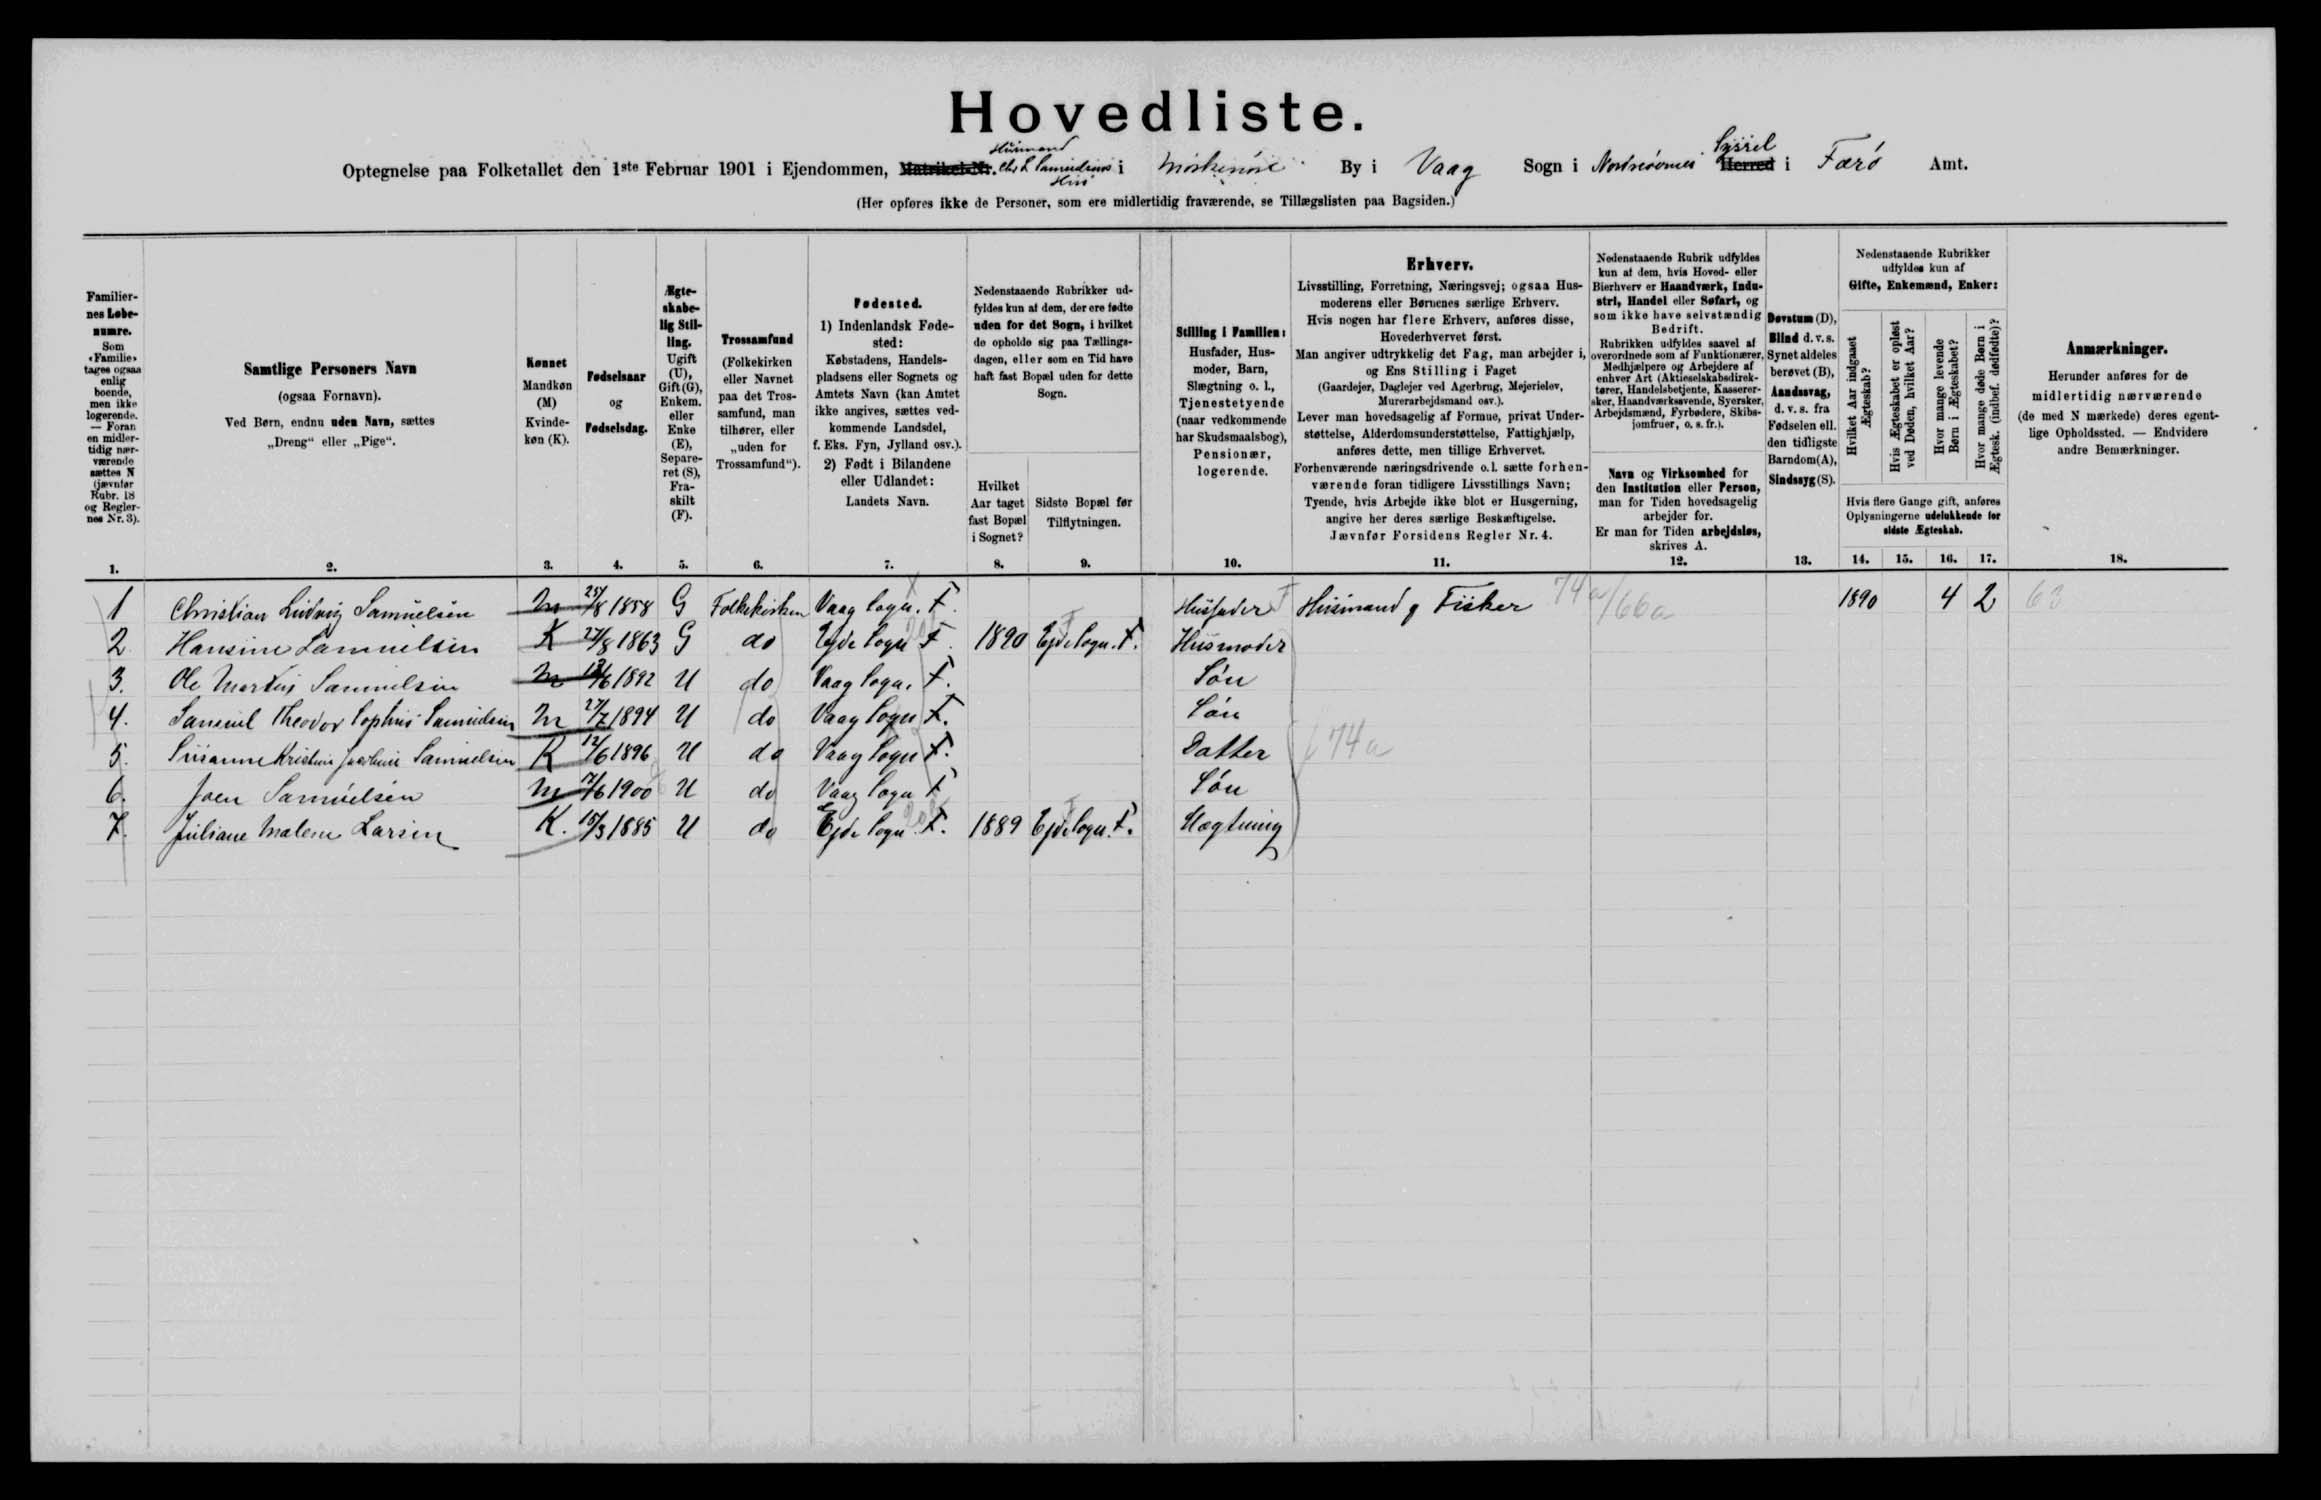 Hovedliste.
Husmand
Optegnelse paa Folketallet den 1ste Februar 1901 i Ejendommen, Matrikel-Nr. Chr. L. Samuelsens i Norskenøre By i Vaag Sogn i Norderøernes Herred i Færø Amt.
Hus
Syssel
(Her opføres ikke de Personer, som ere midlertidig fraværende, se Tillægslisten paa Bagsiden.)
Familiernes Løbenumre.
Som «Familie» tages ogsaa enlig boende, men ikke logerende. — Foran en midlertidig nærværende sættes N (jævnfør Rubr. 18 og Reglernes Nr. 3).
1.
Samtlige Personers Navn
(ogsaa Fornavn).
Ved Børn, endnu uden Navn, sættes
„Dreng" eller „Pige".
2.
Kønnet
Mandkøn
(M)
Kvindekøn (K).
3.
Fødselsaar
og
Fødselsdag.
4.
Ægteskabelig Stilling.
Ugift (U), Gift (G), Enkem. eller Enke (E), Separeret (S), Fraskilt (F).
5.
Trossamfund
(Folkekirken eller Navnet paa det Trossamfund, man tilhører, eller „uden for Trossamfund").
6.
Fødested.
1) Indenlandsk Fødested:
Købstadens, Handelspladsens eller Sognets og Amtets Navn (kan Amtet ikke angives, sættes vedkommende Landsdel, f. Eks. Fyn, Jylland osv.).
2) Født i Bilandene eller Udlandet:
Landets Navn.
7.
Nedenstaaende Rubrikker udfyldes kun af dem, der ere fødte uden for det Sogn, i hvilket de opholde sig paa Tællingsdagen, eller som en Tid have haft fast Bopæl uden for dette Sogn.
Hvilket Aar taget fast Bopæl i Sognet?
8.
Sidste Bopæl før Tilflytningen.
9.
Stilling i Familien:
Husfader, Husmoder, Barn, Slægtning o. l., Tjenestetyende (naar vedkommende har Skudsmaalsbog), Pensionær, logerende.
10.
Erhverv.
Livsstilling, Forretning, Næringsvej; ogsaa Husmoderens eller Børnenes særlige Erhverv.
Hvis nogen har flere Erhverv, anføres disse, Hovederhvervet først.
Man angiver udtrykkelig det Fag, man arbejder i, og Ens Stilling i Faget
(Gaardejer, Daglejer ved Agerbrug, Mejerielev, Murerarbejdsmand osv.).
Lever man hovedsagelig af Formue, privat Understøttelse, Alderdomsunderstøttelse, Fattighjælp, anføres dette, men tillige Erhvervet.
Forhenværende næringsdrivende o. l. sætte forhenværende foran tidligere Livsstillings Navn; Tyende, hvis Arbejde ikke blot er Husgerning, angive her deres særlige Beskæftigelse.
Jævnfør Forsidens Regler Nr. 4.
11.
Nedenstaaende Rubrik udfyldes kun af dem, hvis Hoved- eller Bierhverv er Haandværk, Industri, Handel eller Søfart, og som ikke have selvstændig Bedrift.
Rubrikken udfyldes saavel af overordnede som af Funktionærer, Medhjælpere og Arbejdere af enhver Art (Aktieselskabsdirektører, Handelsbetjente, Kasserersker, Haandværkssvende, Syersker, Arbejdsmænd, Fyrbødere, Skibsjomfruer, o. s. fr.).
Navn og Virksomhed for den Institution eller Person, man for Tiden hovedsagelig arbejder for.
Er man for Tiden arbejdsløs, skrives A.
12.
Døvstum (D), Blind d. v. s. Synet aldeles berøvet (B), Aandssvag, d. v. s. fra Fødselen ell. den tidligste Barndom (A), Sindssyg (S).
13.
Nedenstaaende Rubrikker udfyldes kun af
Gifte, Enkemænd, Enker:
Hvilket Aar indgaaet Ægteskab?
Hvis Ægteskabet er opløst ved Døden, hvilket Aar?
Hvor mange levende Børn i Ægteskabet?
Hvor mange døde Børn i Ægtesk. (indbef. dødfødte)?
Hvis flere Gange gift, anføres Oplysningerne udelukkende for sidste Ægteskab.
14. 15. 16. 17.
Anmærkninger.
Herunder anføres for de midlertidig nærværende (de med N mærkede) deres egentlige Opholdssted. — Endvidere andre Bemærkninger.
18.
1 Christian Ludvig Samuelsen M 25/8 1858 G Folkekirken Vaag Sogn. F. Husfader Husmand g Fisker 74a/66a 1890 4 2 63
2. Hansine Samuelsen K 27/8 1863 G do Ejde Sogn F. 1890 Ejde Sogn. F. Husmoder
3. Ole Martin Samuelsen M 12/6 1892 U do Vaag Sogn. F. Søn
4. Samuel Theodor Sophus Samuelsen M 27/7 1894 U do Vaag Sogn F. Søn
5. Susanne Kristine Samuelsen K 12/6 1896 U do Vaag Sogn F. Datter 74a
6. Joen Samuelsen M 7/6 1900 U do Vaag Sogn F Søn
7. Juliane Malene Larsen K. 15/3 1885 U do Ejde Sogn F. 1889 Ejde Sogn. F. Slægtning